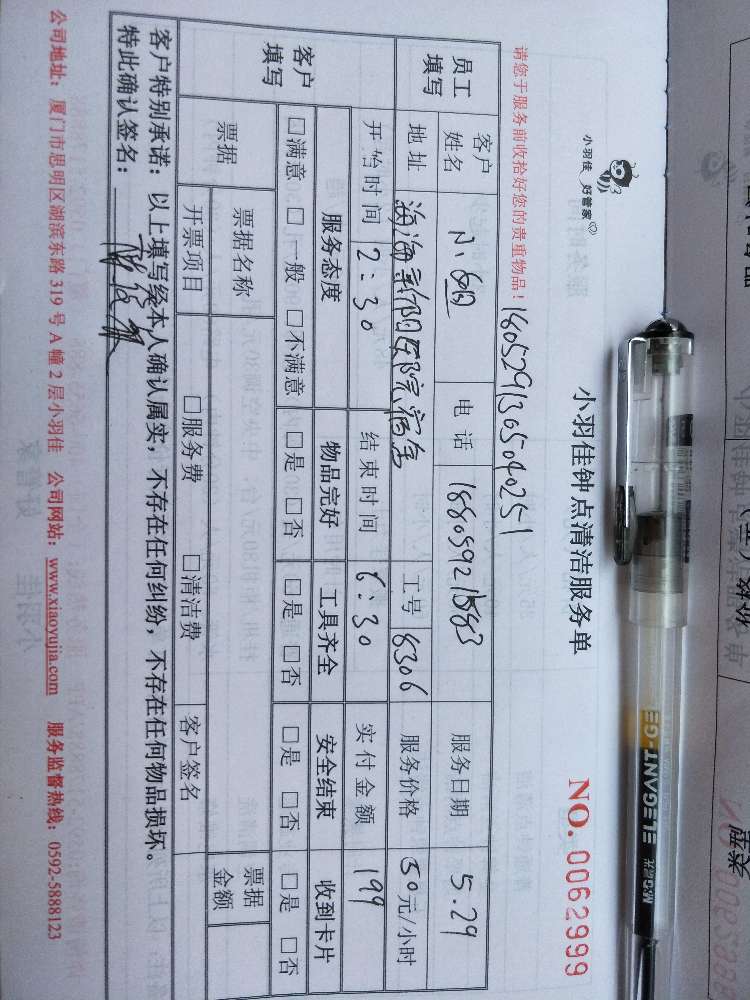 小羽佳 好管家
小羽佳钟点清洁服务单
NO. 0062999
请您于服务前收拾好您的贵重物品！
1805291305040251
员工填写 客户姓名 小姐 电话 18805921583 服务日期 5.29
地址 海海新阳医院宿舍 工号 8306 服务价格 50元/小时
开始时间 2:30 结束时间 6:30 实付金额 199
客户填写 服务态度 物品完好 工具齐全 安全结束 收到卡片
□满意 □一般 □不满意 □是 □否 □是 □否 □是 □否 □是 □否
票据 票据名称 票据金额
开票项目 □服务费 □清洁费 客户签名
客户特别承诺：以上填写经本人确认属实，不存在任何纠纷，不存在任何物品损坏。
特此确认签名：
公司地址：厦门市思明区湖滨东路 319 号 A 幢 2 层小羽佳 公司网站：www.xiaoyujia.com 服务监督热线：0592-5888123
ELEGANT-GE
M&G晨光